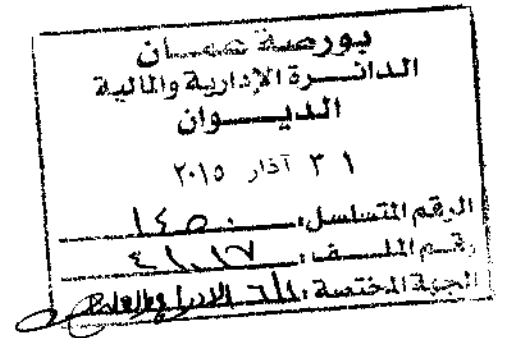 بورصة عمان
الدائرة الإدارية والمالية
الديوان
٣١ آذار ٢٠١٥
الرقم المتسلسل: ١٤٥٠
رقم الملف: ٤١.١٧
الجهة المختصة: